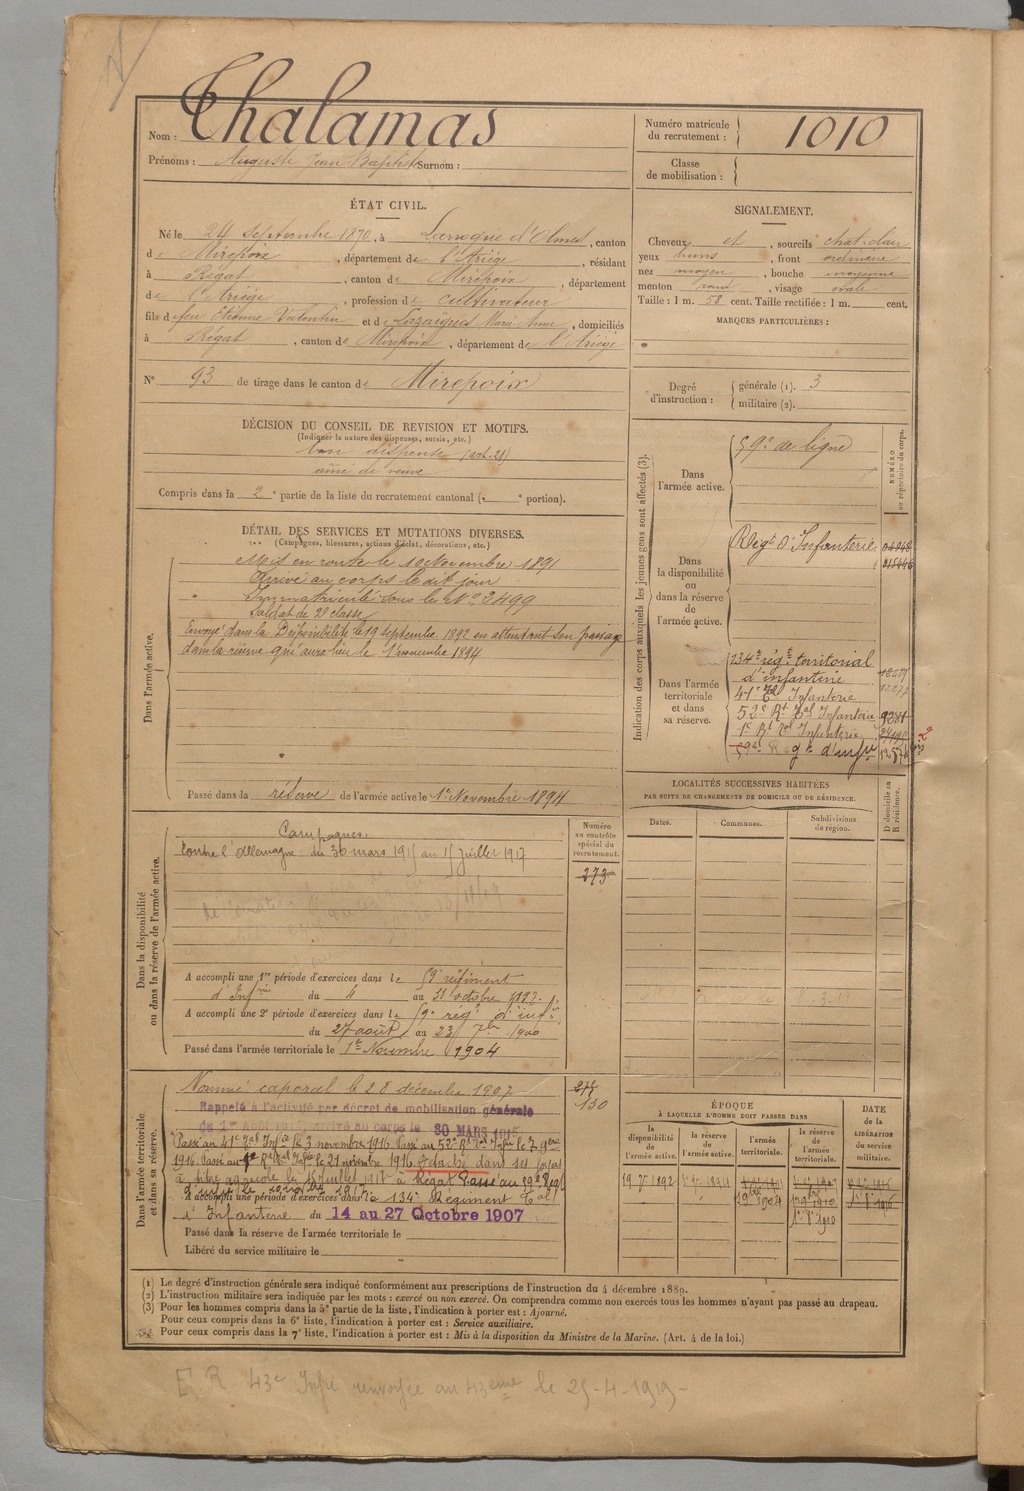 Nom : Thalamas
Prénoms : Auguste Jean Baptiste Surnom :
Numéro matricule du recrutement : 1010
Classe de mobilisation :
ÉTAT CIVIL.
Né le 24 Septembre 1870, à Laroque d'Olmes, canton
de Mirepoix, département de l'Ariège, résidant
à Régat, canton de Mirepoix, département
de l'Ariège, profession de cultivateur
fils de feu Etienne Valentin et de Lazaïgues Marie Anne, domiciliés
à Régat, canton de Mirepoix, département de l'Ariège
N° 93 de tirage dans le canton de Mirepoix
SIGNALEMENT.
Cheveux et, sourcils chat. clair
yeux bruns, front ordinaire
nez moyen, bouche moyenne
menton rond, visage ovale
Taille : 1 m. 58 cent. Taille rectifiée : 1 m. cent.
MARQUES PARTICULIÈRES :
Degré d'instruction : générale (1). 3
militaire (2).
DÉCISION DU CONSEIL DE REVISION ET MOTIFS.
(Indiquer la nature des dispenses, sursis, etc.)
bon dispensé (art. 21)
aîné de veuve
Compris dans la 2e partie de la liste du recrutement cantonal ( e portion).
DÉTAIL DES SERVICES ET MUTATIONS DIVERSES.
(Campagnes, blessures, actions d'éclat, décorations, etc.)
Dans l'armée active.
Mis en route le 10 Novembre 1891
Arrivé au corps le dit jour
Immatriculé sous le No 3499
Soldat de 2e classe
Envoyé dans la Disponibilité le 19 septembre 1892 en attendant son passage
dans la réserve qui aura lieu le 1er novembre 1894
Passé dans la réserve de l'armée active le 1er Novembre 1894
Indication des corps auxquels les jeunes gens sont affectés (3).
NUMÉRO au répertoire du corps.
Dans l'armée active.
59e de ligne
Dans la disponibilité ou dans la réserve de l'armée active.
Régt d'Infanterie
Dans l'armée territoriale et dans sa réserve.
134e régt territorial
d'infanterie
41e Tal Infanterie
52e Rt Tal Infanterie
1e Rt Tal Infanterie
59e Régt d'infie
LOCALITÉS SUCCESSIVES HABITÉES
PAR SUITE DE CHANGEMENTS DE DOMICILE OU DE RÉSIDENCE.
Dates.
Communes.
Subdivisions de région.
D domicile ou R résidence.
Dans la disponibilité ou dans la réserve de l'armée active.
Numéro au contrôle spécial du recrutement.
273
Campagnes.
Contre l'Allemagne du 30 mars 1915 au 15 Juillet 1917
A accompli une 1re période d'exercices dans le 59 régiment
d'Infrie du 4 au 31 octobre 1897.
A accompli une 2e période d'exercices dans le 59e régt d'infie
du 27 août au 23 7bre 1900
Passé dans l'armée territoriale le 1er Novembre 1904
Dans l'armée territoriale et dans sa réserve.
130
Nommé caporal le 28 décembre 1907
Rappelé à l'activité par décret de mobilisation générale
du 1er Août 1914, arrivé au corps le 30 MARS 1915
Passé au 41e Tal Infie le 3 novembre 1916. Passé au 52e Rt Tal Infie le 7 9bre
1916. Passé au 1e Rt Tal Infie le 21 novembre 1916. Détaché dans ses foyers
agricole le 15 juillet 1917 à Régat Passé au 59e Régt
A accompli une période d'exercices dans le 134e Régiment Tal
d'Infanterie du 14 au 27 Octobre 1907
Passé dans la réserve de l'armée territoriale le
Libéré du service militaire le
ÉPOQUE
À LAQUELLE L'HOMME DOIT PASSER DANS
la disponibilité de l'armée active.
la réserve de l'armée active.
l'armée territoriale.
la réserve de l'armée territoriale.
DATE de la LIBÉRATION du service militaire.
19 7e 1892
(1) Le degré d'instruction générale sera indiqué conformément aux prescriptions de l'instruction du 4 décembre 1889.
(2) L'instruction militaire sera indiquée par les mots : exercé ou non exercé. On comprendra comme non exercés tous les hommes n'ayant pas passé au drapeau.
(3) Pour les hommes compris dans la 5e partie de la liste, l'indication à porter est : Ajourné.
Pour ceux compris dans la 6e liste, l'indication à porter est : Service auxiliaire.
Pour ceux compris dans la 7e liste, l'indication à porter est : Mis à la disposition du Ministre de la Marine. (Art. 4 de la loi.)
E R 43e Infie renvoyée au 43eme le 25-4-1919-